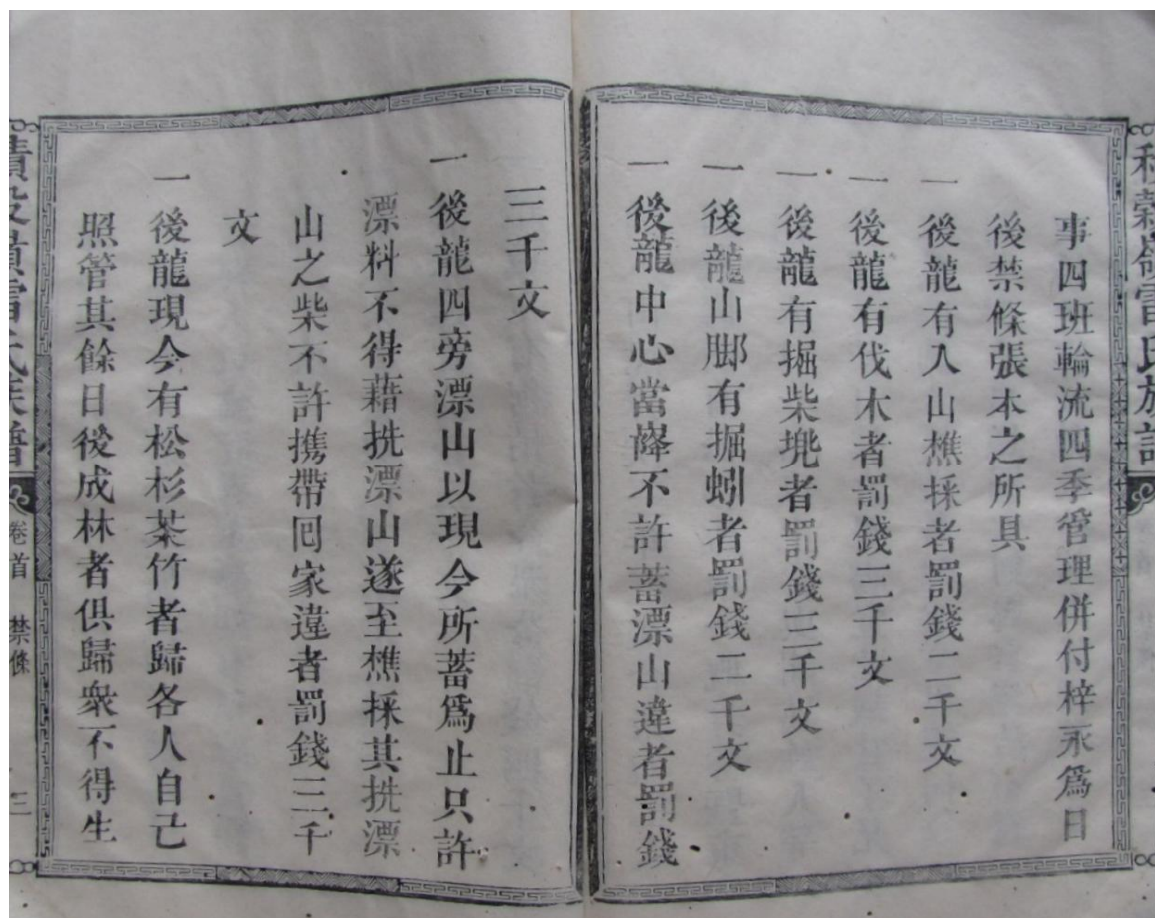 積穀嶺雷氏族譜
事四班輪流四季管理併付梓永爲日
後禁條張本之所具
一後龍有入山樵採者罰錢二千文
一後龍有伐木者罰錢三千文
一後龍有掘柴兠者罰錢三千文
一後龍山脚有掘蚓者罰錢二千文
一後龍中心當峰不許蓄漂山違者罰錢
三千文
一後龍四旁漂山以現今所蓄爲止只許
漂料不得藉挑漂山遂至樵採其挑漂
山之柴不許携帶囘家違者罰錢三千
文
一後龍現今有松杉茶竹者歸各人自己
照管其餘日後成林者俱歸衆不得生
積穀嶺雷氏族譜
卷首 禁條 三